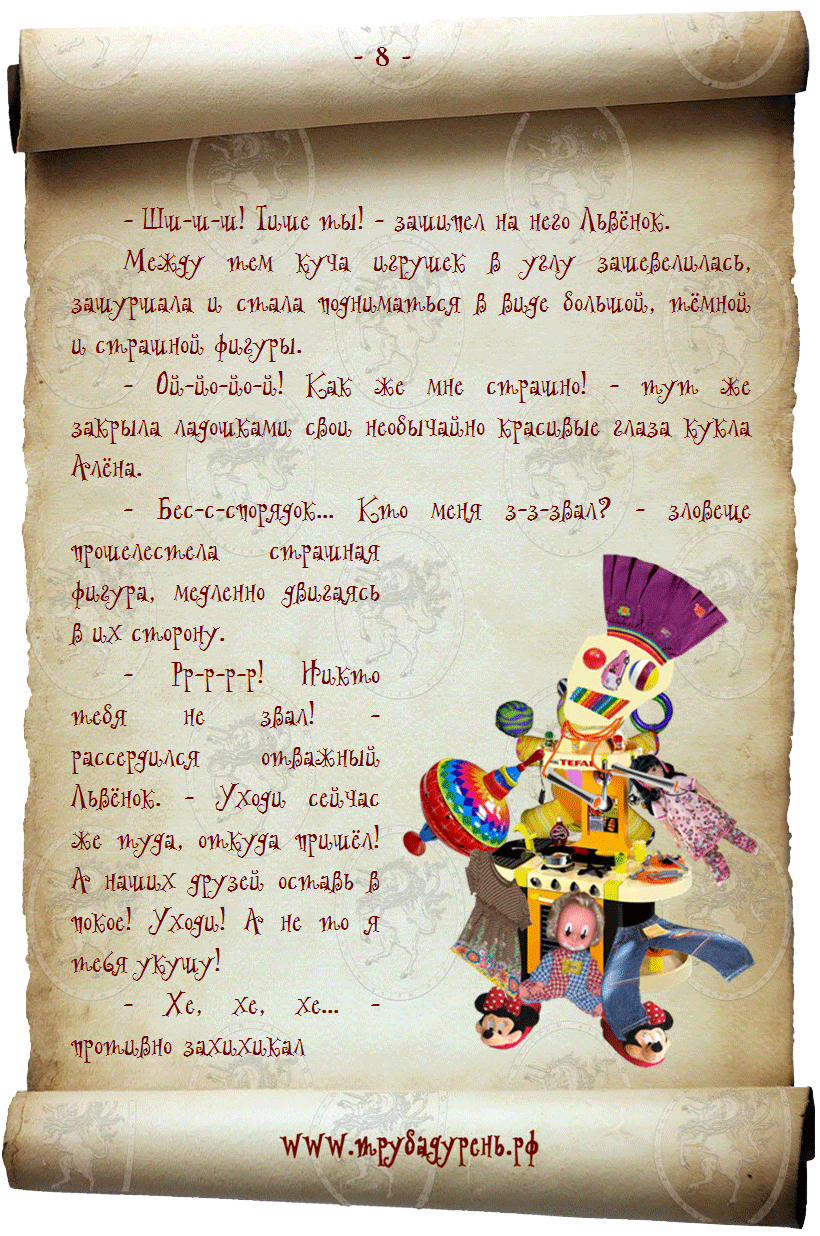 - 8 -
- Ш-ш-ш! Тише ты! - зашипел на него Львёнок.
Между тем куча игрушек в углу зашевелилась,
зашуршала и стала подниматься в виде большой, тёмной
и страшной фигуры.
- Ой-йо-йо-й! Как же мне страшно! - тут же
закрыла ладошками свои необычайно красивые глаза кукла
Алёна.
- Бес-с-спорядок... Кто меня з-з-звал? - зловеще
прошелестела страшная
фигура, медленно двигаясь
в их сторону.
- Рр-р-р-р! Никто
тебя не звал! -
рассердился отважный
Львёнок. - Уходи сейчас
же туда, откуда пришёл!
А наших друзей оставь в
покое! Уходи! А не то я
тебя укушу!
- Хе, хе, хе... -
противно захихикал
TEFAL
www.трубадурень.рф